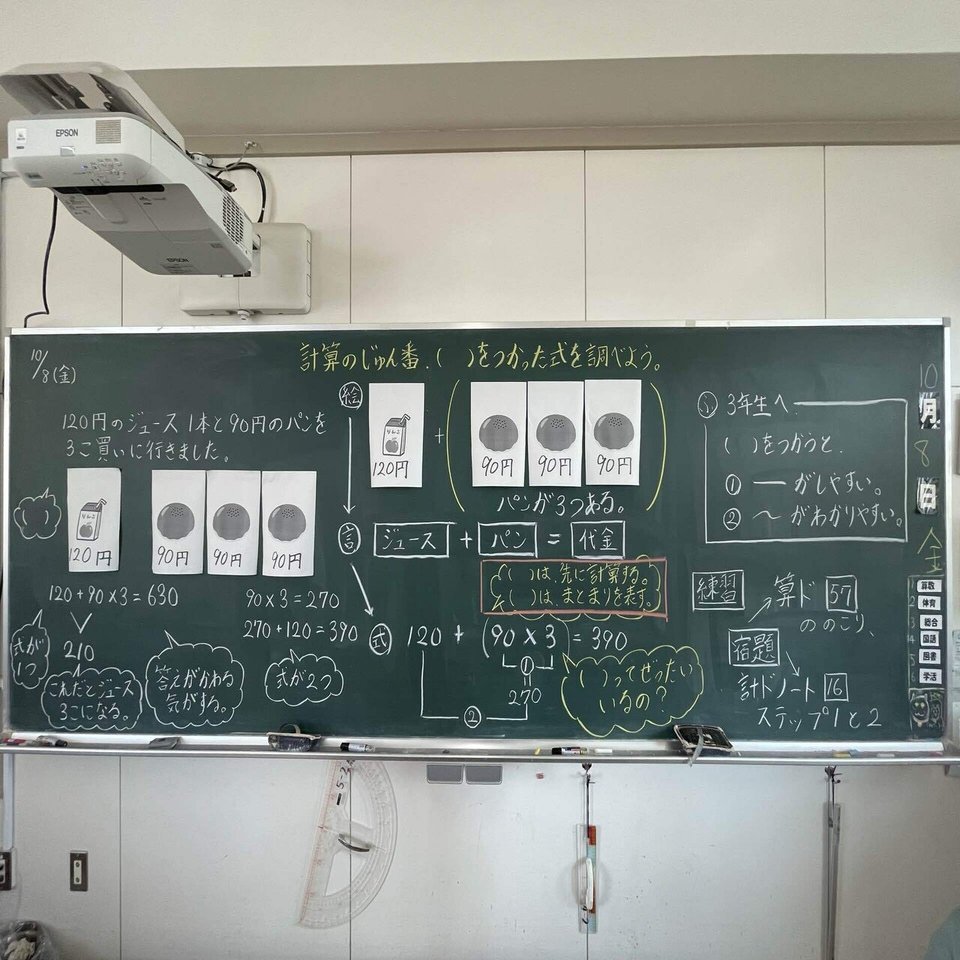 EPSON
EPSON
10/8(金)
計算のじゅん番、( )をつかった式を調べよう。
120円のジュース1本と90円のパンを
3こ買いに行きました。
りんご
120円
90円
90円
90円
120+90×3=630
210
式が1つ
これだとジュース
3こになる。
答えがかわる
気がする。
90×3=270
270+120=390
式が2つ
絵
りんご
120円
+
90円
90円
90円
パンが3つある。
言
ジュース + パン = 代金
( )は、先に計算する。
( )は、まとまりを表す。
式
120 + (90×3) = 390
①
270
②
( )ってぜったい
いるの?
3年生へ
( )をつかうと、
① ― がしやすい。
② ～ がわかりやすい。
練習
算ド 57
ののこり、
宿題
計ドノート 16
ステップ1と2
10
月
8
金
算数
体育
総合
国語
図書
学活
5-2